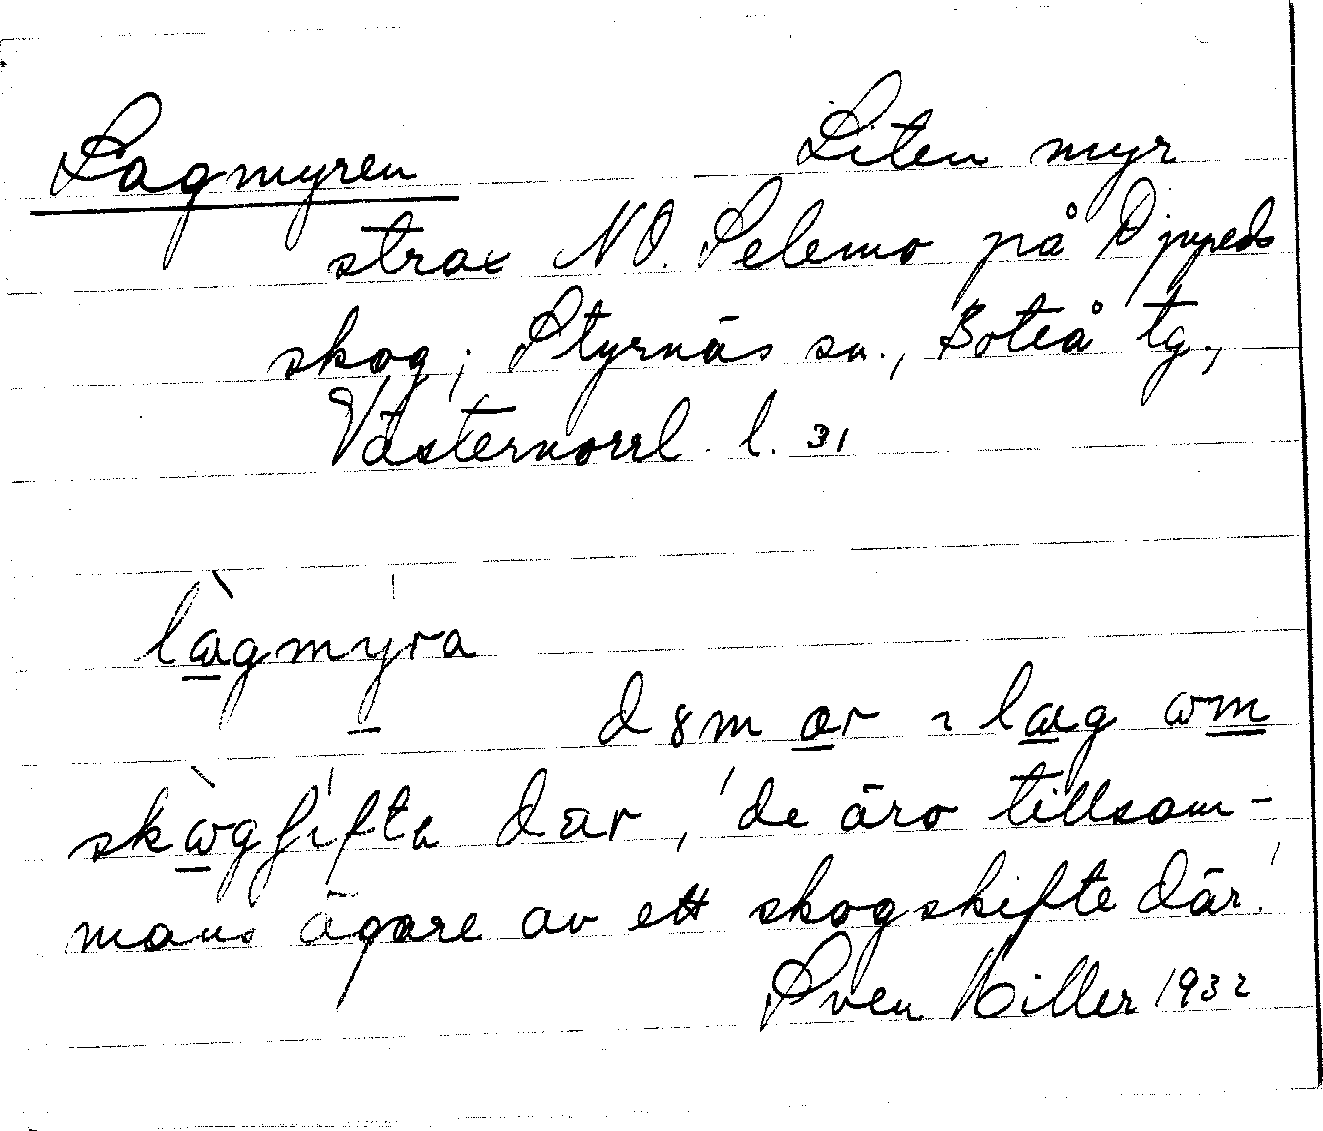 Lagmyren Liten myr
strax NO. Selemo på Djupeds
skog; Styrnäs sn., Boteå tg.,
Västernorrl. l. 31
làgmyra
ɯm
där, 'de äro tillsam-
mans ägare av ett skogskifte där.'
Sven Hiller 1932